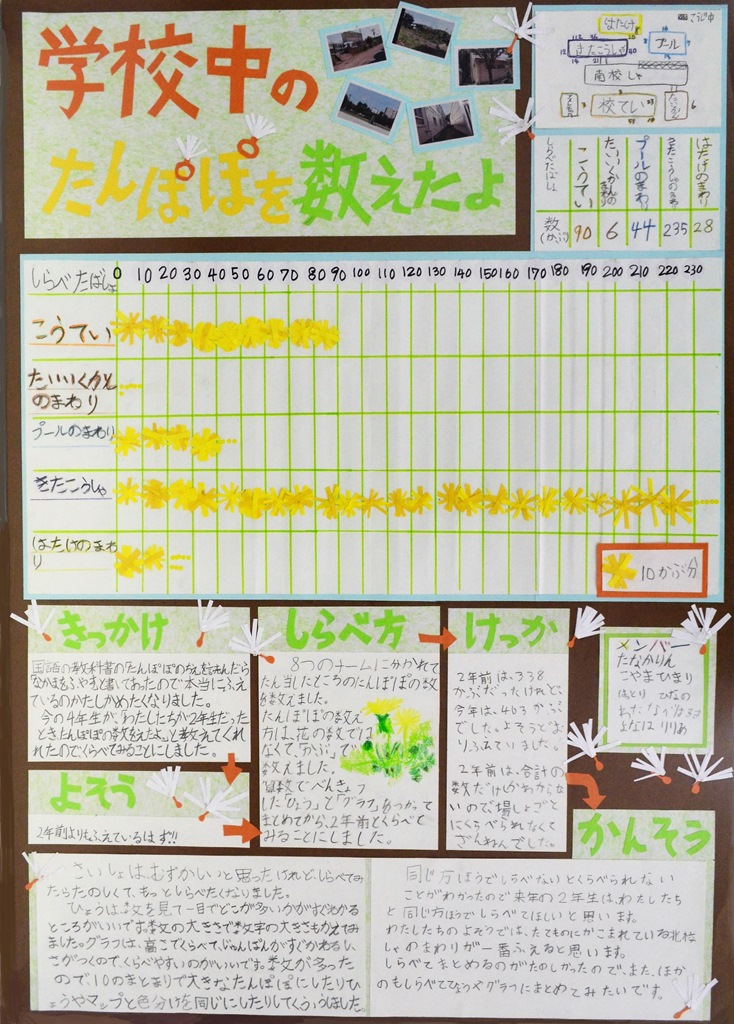 学校中の
たんぽぽを数えたよ
はたけ
きたこうしゃ
プール
南校しゃ
校てい
しらべたばしょ
こうてい
たいいくかんのまわり
プールのまわり
きたこうしゃのまわり
はたけのまわり
数(かぶ) 90 6 44 235 28
しらべたばしょ 0 10 20 30 40 50 60 70 80 90 100 110 120 130 140 150 160 170 180 190 200 210 220 230
こうてい
たいいくかん
のまわり
プールのまわり
きたこうしゃ
はたけのまわ
り
10かぶ分
きっかけ
国語の教科書の「たんぽぽのちえ」をよんだら
なかまをふやすと書いてあったので本当にふえ
ているのかたしかめたくなりました。
今の4年生が、わたしたちが2年生だった
ときたんぽぽの数をかぞえたよ。」と教えてくれ
れたのでくらべてみることにしました。
よそう
2年前よりもふえているはず!!
しらべ方
8つのチームに分かれて
たん当したところのたんぽぽの数
を数えました。
たんぽぽの数え
方は、花の数では
なくて、「かぶ」で
数えました。
算数でべんきょう
した「ひょう」と「グラフ」をつかって
まとめてから、2年前とくらべて
みることにしました。
けっか
2年前は、338
かぶだったけれど、
今年は、403かぶ
でした。よそうどお
りふえていました。
2年前は、合計の
数だけしかわからな
いので場しょごと
にくらべられなくて
ざんねんでした。
メンバー
たなかりん
こやまひまり
はっとり ひなの
よなは りりあ
かんそう
さいしょは、むずかしいと思ったけれど、しらべてみ
たらたのしくて、もっとしらべたくなりました。
ひょうは、数を見て一目でどこが多いかがすぐわかる
ところがいいです。数の大きさで数字の大きさもかえてみ
ました。グラフは、高さでくらべて、じゅんばんがすぐわかるし、
さがつくので、くらべやすいのがいいです。数が多かった
ので、10のまとまりで大きなたんぽぽにしたりひ
ょうやマップと色分けを同じにしたりしてくふうしました。
同じ方ほうでしらべないとくらべられない
ことがわかったので来年の2年生は、わたしたち
と同じ方ほうでしらべてほしいと思います。
わたしたちのよそうでは、たてものにかこまれている北校
しゃのまわりが一番ふえると思います。
しらべてまとめるのがたのしかったので、また、ほか
のもしらべてひょうやグラフにまとめてみたいです。